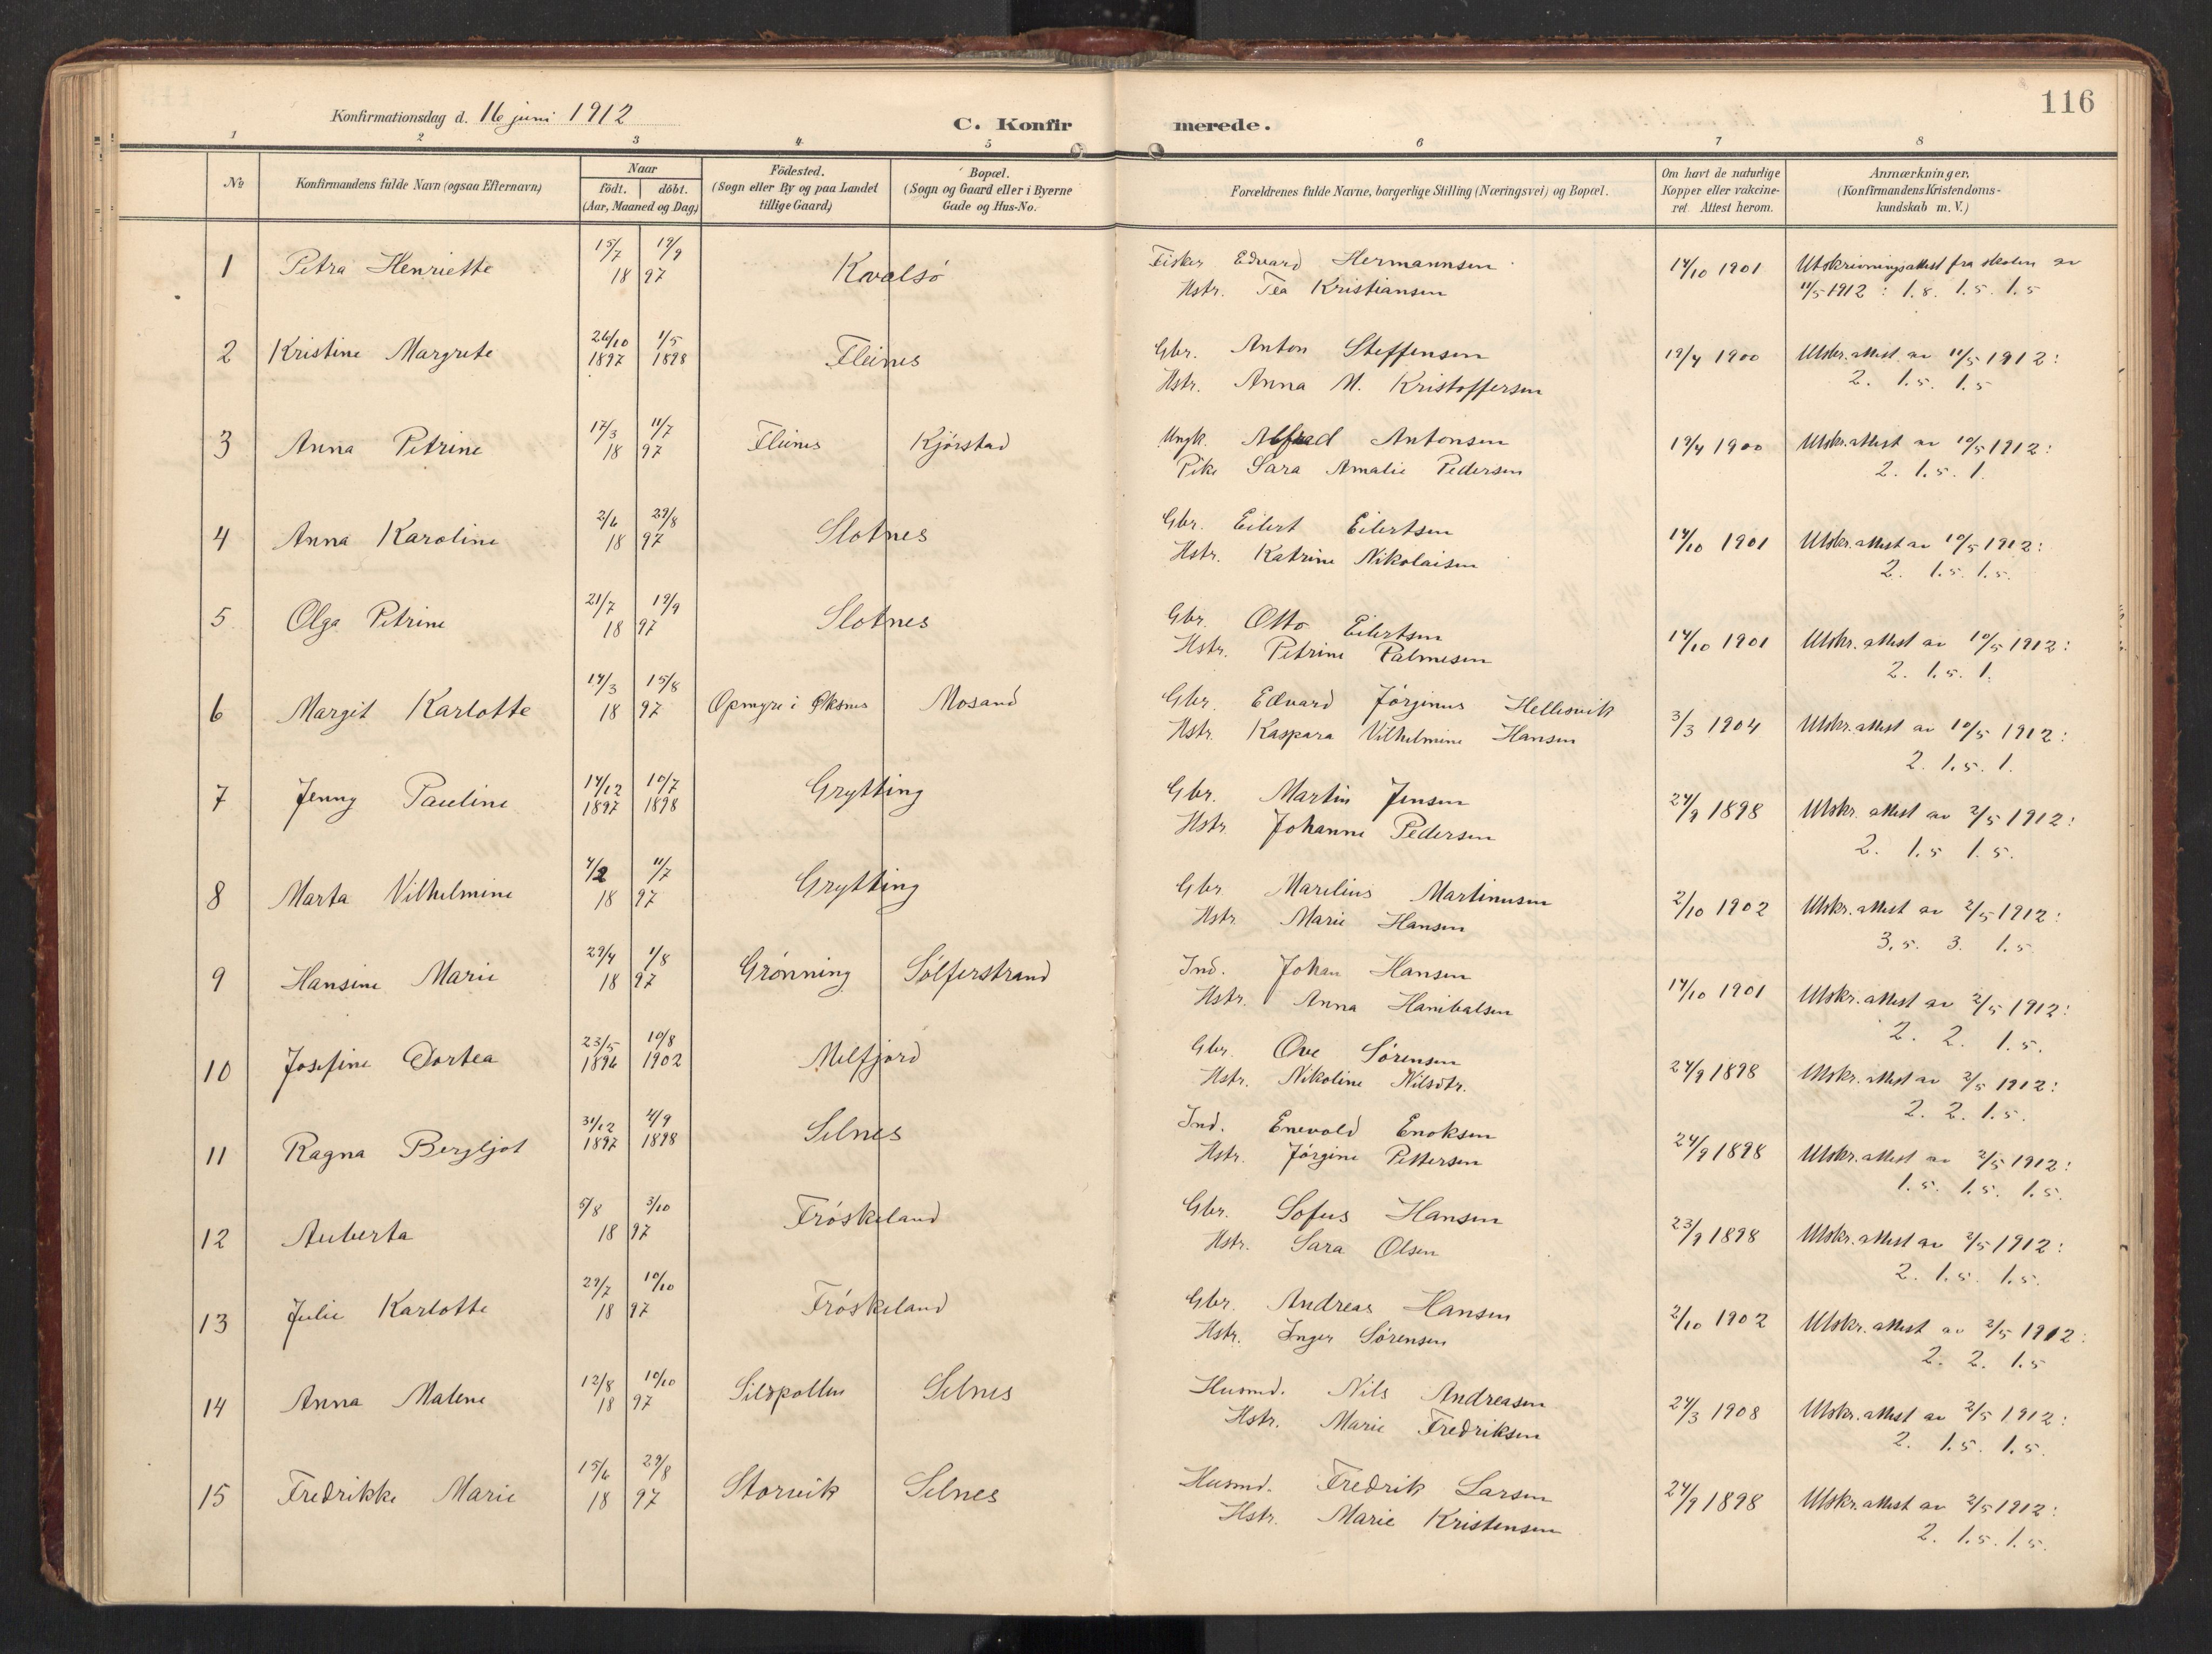 116
Konfirmationsdag d. 16 juni 1912
C. Konfirmerede.
1 2 3 4 5 6 7 8
№ Konfirmandens fulde Navn (ogsaa Efternavn) Naar født. døbt. (Aar, Maaned og Dag) Fødested. (Sogn eller By og paa Landet tillige Gaard) Bopæl. (Sogn og Gaard eller i Byerne Gade og Hus-No. Forældrenes fulde Navne, borgerlige Stilling (Næringsvei) og Bopæl. Om havt de naturlige Kopper eller vakcineret. Attest herom. Anmærkninger. (Konfirmandens Kristendomskundskab m. V.)
1 Petra Henriette 15/7 19/9 1897 Kvalsø Fisker Edvard Hermannsen 14/10 1901 Utskrivningsattest fra skolen av
Hstr. Tea Kristiansen 11/5 1912 : 1.8. 1.5. 1.5
2 Kristine Margrete 26/10 1897 1/5 1898 Fleines Gbr. Anton Steffensen 19/4 1900 Utskr. attest av 11/5 1912:
Hstr. Anna M. Kristoffersen 2. 1.5. 1.5
3 Anna Petrine 17/3 11/7 1897 Fleines Kjørstad Ungk. Alfred Antonsen 19/4 1900 Utskr. attest av 10/5 1912:
Pike Sara Amalie Pedersen 2. 1.5. 1.
4 Anna Karoline 2/6 29/8 1897 Slotnes Gbr. Eilert Eilertsen 14/10 1901 Utskr. attest av 10/5 1912:
Hstr. Katrine Nikolaisen 2. 1.5. 1.5.
5 Olga Petrine 21/7 19/9 1897 Slotnes Gbr. Otto Eilertsen 14/10 1901 Utskr. attest av 10/5 1912:
Hstr. Petrine Palmesen 2. 1.5. 1.
6 Margit Karlotte 14/3 15/8 1897 Opmyre i Øksnes Mosand Gbr. Edvard Jørginus Hellesvik 3/3 1904 Utskr. attest av 10/5 1912:
Hstr. Kaspara Vilhelmine Hansen 2. 1.5. 1.
7 Jenny Pauline 14/12 1897 10/7 1898 Grytting Gbr. Martin Jensen 24/9 1898 Utskr. attest av 2/5 1912:
Hstr. Johanne Pedersen 2. 1.5 1.5.
8 Marta Vilhelmine 4/2 11/7 1897 Grytting Gbr Marelius Martinusen 2/10 1902 Utskr. attest av 2/5 1912:
Hstr. Marie Hansen 3.5. 3. 1.5
9 Hansine Marie 29/4 1/8 1897 Grønning Sølferstrand Ind. Johan Hansen 14/10 1901 Utskr. attest av 2/5 1912:
Hstr. Anna Hanibalsen 2. 2. 1.5.
10 Josefine Dortea 23/5 1896 10/8 1902 Melfjord Gbr. Ove Sørensen 24/9 1898 Utskr. attest av 2/5 1912:
Hstr. Nikoline Nilsdtr. 2. 2. 1.5.
11 Ragna Bergljot 31/12 1897 4/9 1898 Selnes Ind. Enevold Enoksen 24/9 1898 Utskr. attest av 2/5 1912:
Hstr. Jørgine Pettersen 1.5. 1.5. 1.5.
12 Auberta 5/8 3/10 1897 Frøskeland Gbr. Sofus Hansen 23/9 1898 Utskr. attest av 2/5 1912:
Hstr. Sara Olsen 2. 1.5. 1.5.
13 Julie Karlotte 29/7 10/10 1897 Frøskeland Gbr. Andreas Hansen 2/10 1902 Utskr. attest av 2/5 1912:
Hstr. Inger Sørensen 2. 2. 1.5
14 Anna Malene 12/8 10/10 1897 Sildpollen Selnes Husmd. Nils Andreasen 24/3 1908 Utskr. attest av 2/5 1912:
Hstr. Marie Fredriksen 2. 1.5. 1.5.
15 Fredrikke Marie 15/6 29/8 1897 Storvik Selnes Husmd. Fredrik Larsen 24/9 1898 Utskr. attest av 2/5 1912:
Hstr. Marie Kristensen 2. 1.5. 1.5.